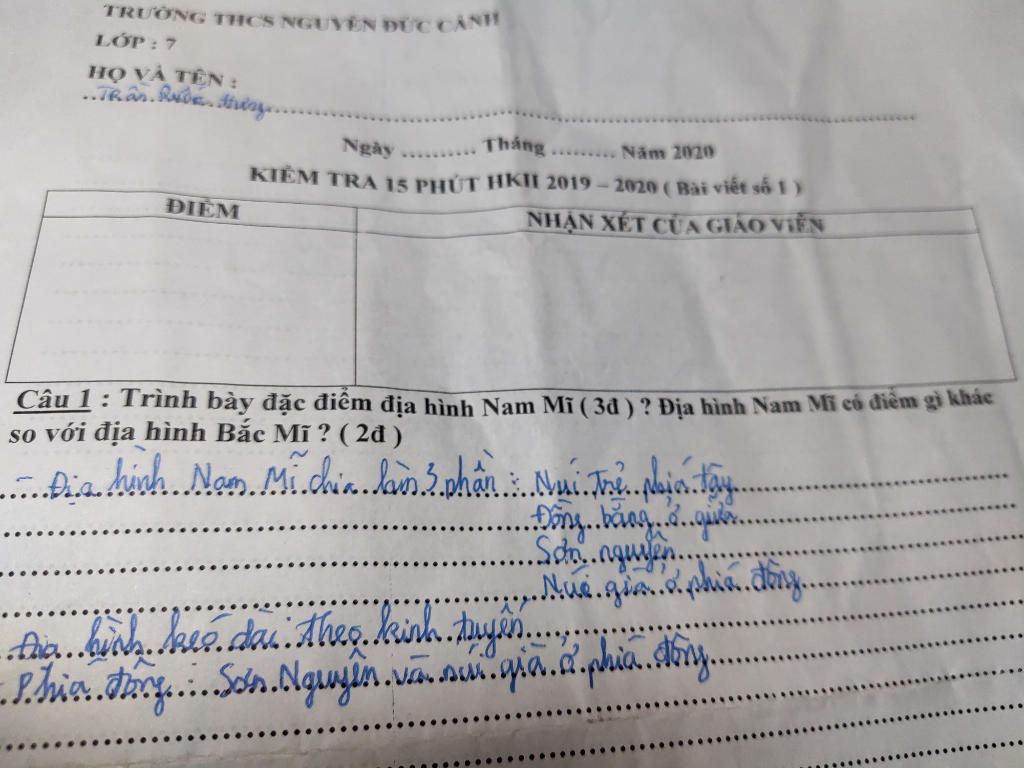 TRƯỜNG THCS NGUYỄN ĐỨC CẢNH
LỚP : 7
HỌ VÀ TÊN :
Trần
Ngày .......... Tháng ......... Năm 2020
KIỂM TRA 15 PHÚT HKII 2019 – 2020 ( Bài viết số 1 )
ĐIỂM
NHẬN XÉT CỦA GIÁO VIÊN
Câu 1 : Trình bày đặc điểm địa hình Nam Mĩ ( 3đ ) ? Địa hình Nam Mĩ có điểm gì khác
so với địa hình Bắc Mĩ ? ( 2đ )
- Địa hình Nam Mĩ chia làm 3 phần : Núi Trẻ phía tây
Đồng bằng ở giữa
Sơn nguyên
Núi già ở phía đông
Địa hình kéo dài theo kinh tuyến
Phía đông : Sơn Nguyên và núi già ở phía đông